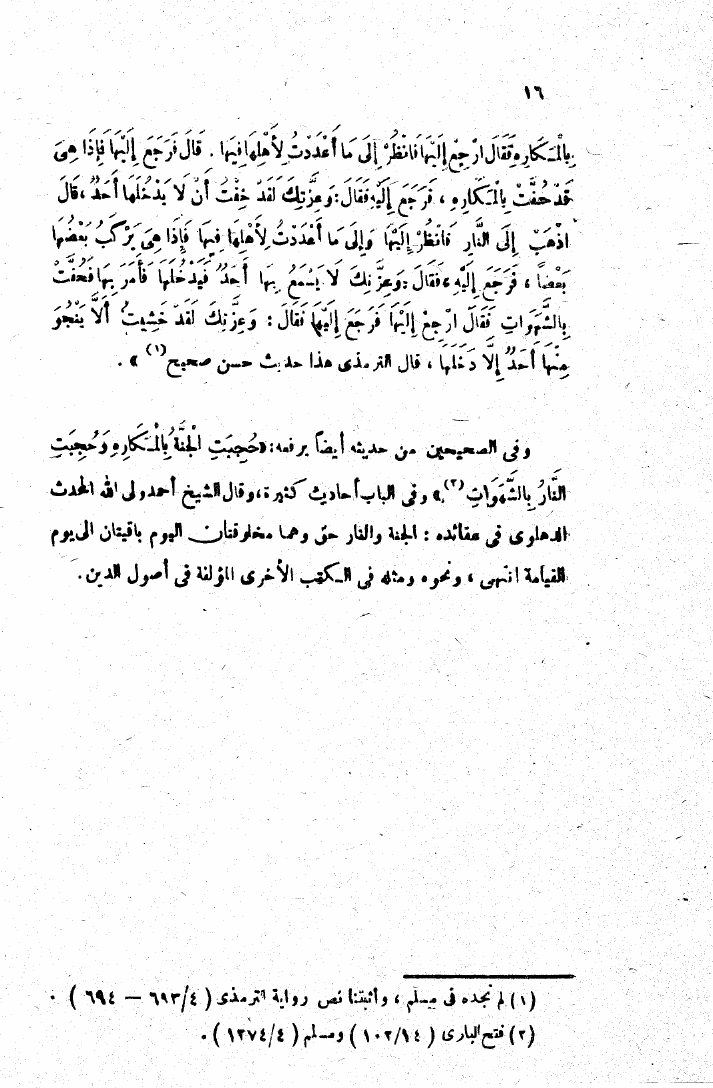 ١٦
بِالْمَكَارِهِ فَقَالَ ارْجِعْ إِلَيْهَا فَانْظُرْ إِلَى مَا أَعْدَدْتُ لِأَهْلِهَا فِيهَا . قَالَ فَرَجَعَ إِلَيْهَا فَإِذَا هِىَ
قَدْ حُفَّتْ بِالْمَكَارِهِ ، فَرَجَعَ إِلَيْهِ فَقَالَ : وَعِزَّتِكَ لَقَدْ خِفْتُ أَنْ لَا يَدْخُلَهَا أَحَدٌ ، قَالَ
اذْهَبْ إِلَى النَّارِ فَانْظُرْ إِلَيْهَا وَإِلَى مَا أَعْدَدْتُ لِأَهْلِهَا فِيهَا فَإِذَا هِىَ يَرْكَبُ بَعْضُهَا
بَعْضًا ، فَرَجَعَ إِلَيْهِ ، فَقَالَ : وَعِزَّتِكَ لَا يَسْمَعُ بِهَا أَحَدٌ فَيَدْخُلَهَا فَأَمَرَ بِهَا فَحُفَّتْ
بِالشَّهَوَاتِ فَقَالَ ارْجِعْ إِلَيْهَا فَرَجَعَ إِلَيْهَا فَقَالَ : وَعِزَّتِكَ لَقَدْ خَشِيتُ أَلَّا يَنْجُوَ
مِنْهَا أَحَدٌ إِلَّا دَخَلَهَا ، قال الترمذى هذا حديث حسن صحيح (١) » .
وفى الصحيحين من حديثه أيضاً يرفعه : « حُجِبَتِ الْجَنَّةُ بِالْمَكَارِهِ وَحُجِبَتِ
النَّارُ بِالشَّهَوَاتِ (٢) » وفى الباب أحاديث كثيرة ، وقال الشيخ أحمد ولى الله المحدث
الدهلوى فى عقائده : الجنة والنار حق وهما مخلوقتان اليوم باقيتان الى يوم
القيامة انتهى ، ونحوه ومثله فى الكتب الأخرى المؤلفة فى أصول الدين .
(١) لم نجده فى مسلم ، وأثبتنا نص رواية الترمذى ( ٦٩٣/٤ – ٦٩٤ ) .
(٢) فتح البارى ( ١٠٢/١٤ ) ومسلم ( ١٢٧٤/٤ ) .